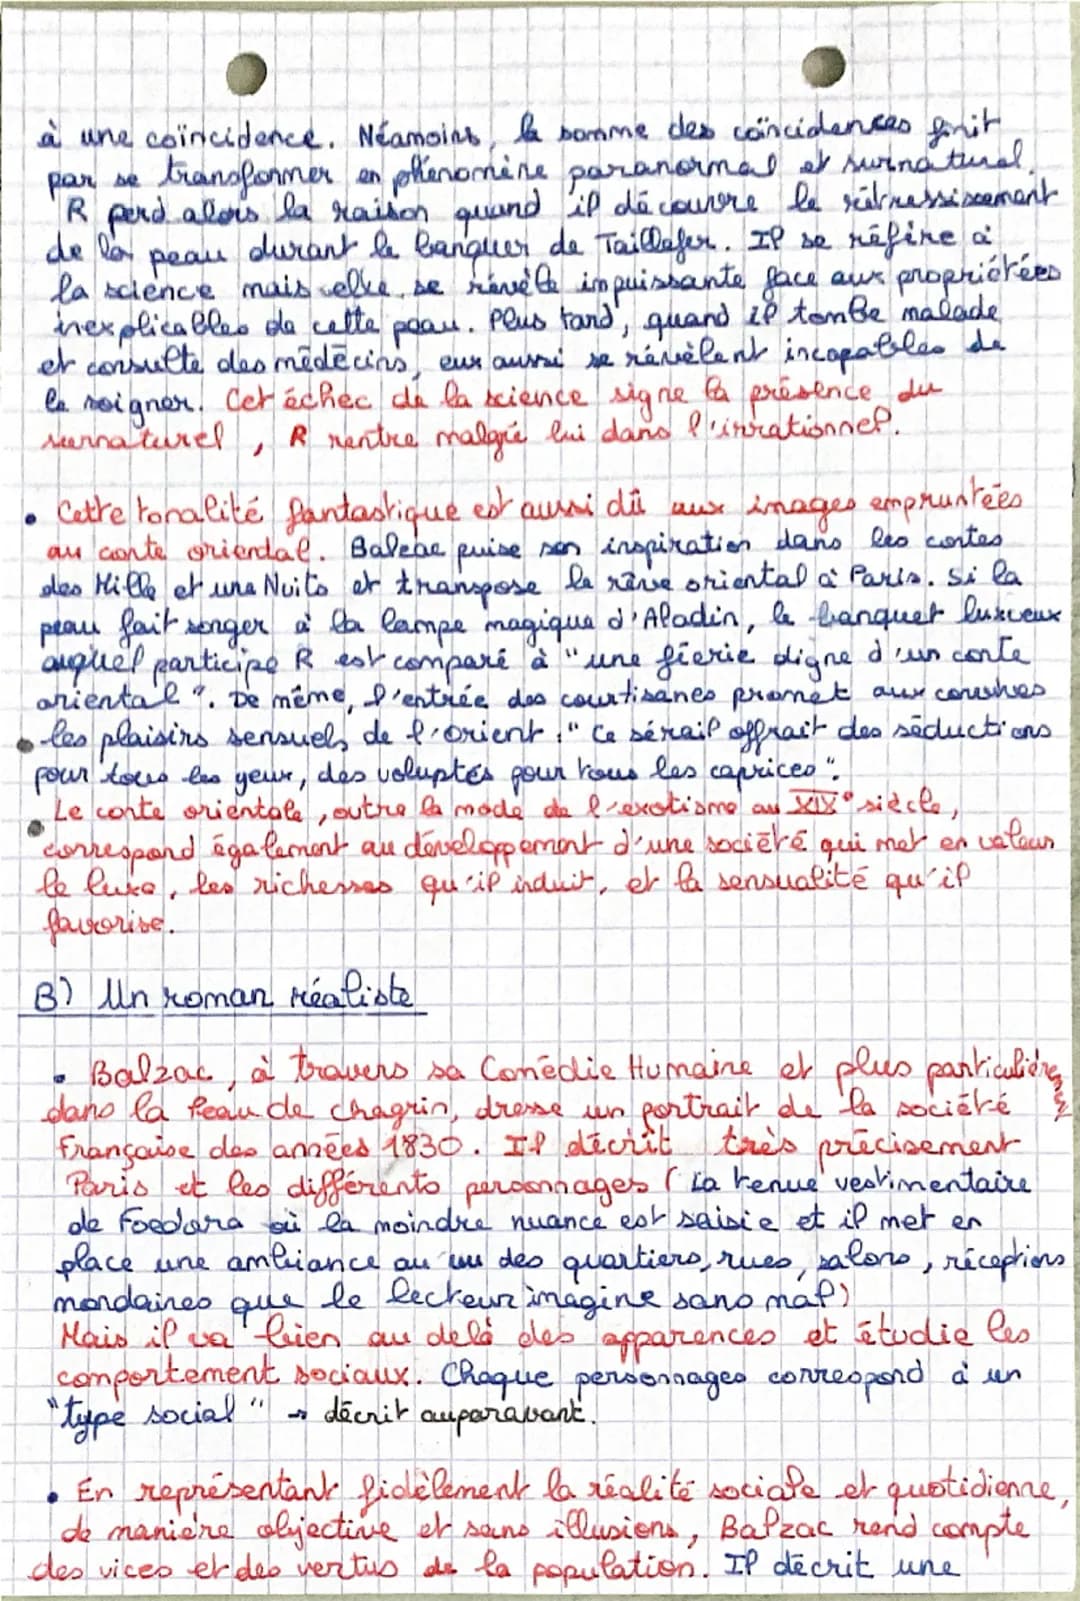 à une coïncidence. Néamoins, la somme des coïncidences finit
par se transformer en phénomène paranormal et surnaturel.
R perd alors la raison quand il découvre le rétressissement
de la peau durant le banquer de Taillefer. Il se réfère à
la science mais celle se révèle impuissante face aux propriétées
inexplicables de cette peau. Plus tard, quand il tombe malade
et consulte des médecins, eux aussi se révèlent incapables de
le soigner. Cet échec de la science signe la présence du
surnaturel, R rentre malgré lui dans l'irrationnel.
• Cette tonalité fantastique est aussi dû aux images empruntées
au conte oriental. Balzac puise son inspiration dans les contes
des Mille et une Nuits et transpose le rêve oriental à Paris. Si la
peau fait songer à la lampe magique d'Aladin, le banquet luxueux
auquel participe R est comparé à "une féerie digne d'un conte
oriental". De même, l'entrée des courtisanes promet aux convives
les plaisirs sensuels de l'orient : "Ce sérail offrait des séductions
pour tous les yeux, des voluptés pour tous les caprices".
Le conte orientale, outre la mode de l'exotisme au XIX° siècle,
correspond également au développement d'une société qui met en valeur
le luxe, les richesses qu'il induit, et la sensualité qu'il
favorise.
B) Un roman réaliste
• Balzac, à travers sa Comédie Humaine et plus particulièrement
dans la Peau de chagrin, dresse un portrait de la société
Française des années 1830. Il décrit très précisement
Paris et les différents personnages (La tenue vestimentaire
de Foedora où la moindre nuance est saisie et il met en
place une ambiance au vu des quartiers, rues, salons, réceptions
mondaines que le lecteur imagine sans mal)
Mais il va bien au delà des apparences et étudie les
comportement sociaux. Chaque personnages correspond à un
"type social" → décrit auparavant.
• En représentant fidèlement la réalité sociale et quotidienne,
de manière objective et sans illusions, Balzac rend compte
des vices et des vertus de la population. Il décrit une